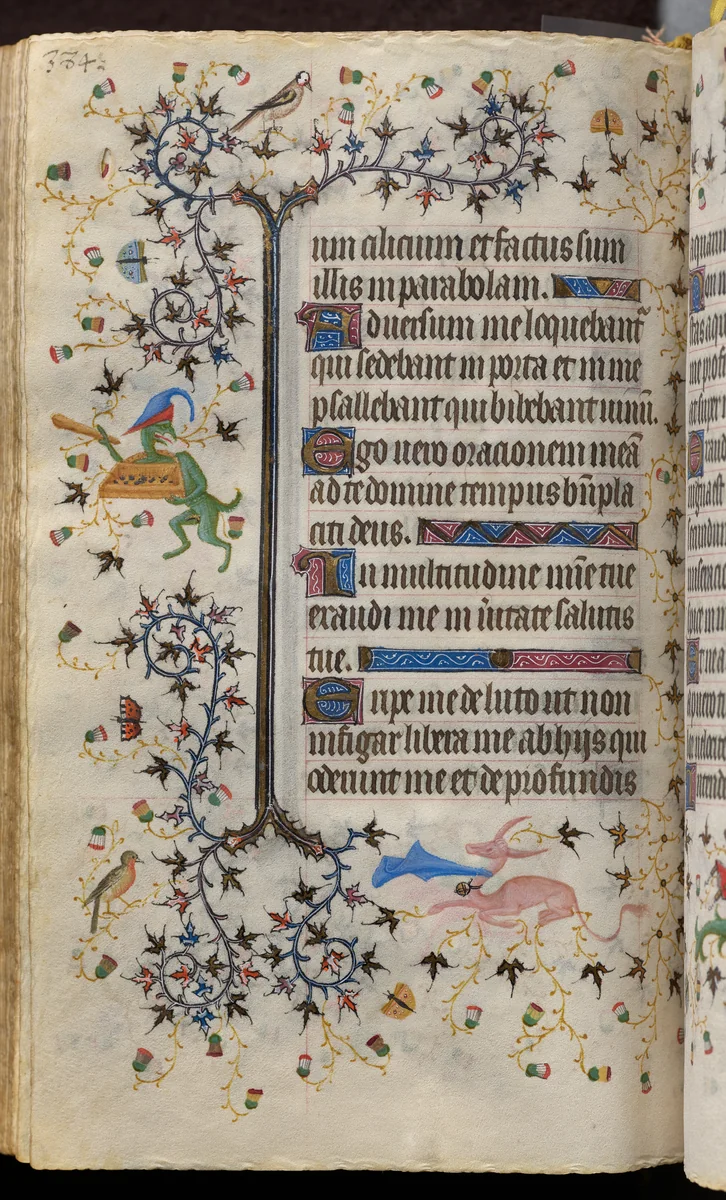 334
um cilicium et factus sum
illis in parabolam.
Aduersum me loquebant᷑
qui sedebant in porta et in me
psallebant qui bibebant uinū.
Ego uero orationem meā
ad te domine tempus bn̄pla
citi deus.
In multitudine mīe tue
exaudi me in ūitate salutis
tue.
Eripe me de luto ut non
infigar libera me ab hijs qui
oderunt me et de profundis